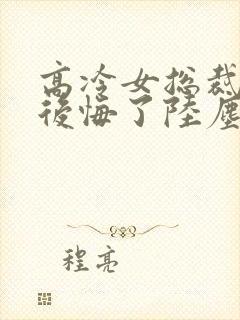 高冷女总裁
後悔了陸塵
程亮